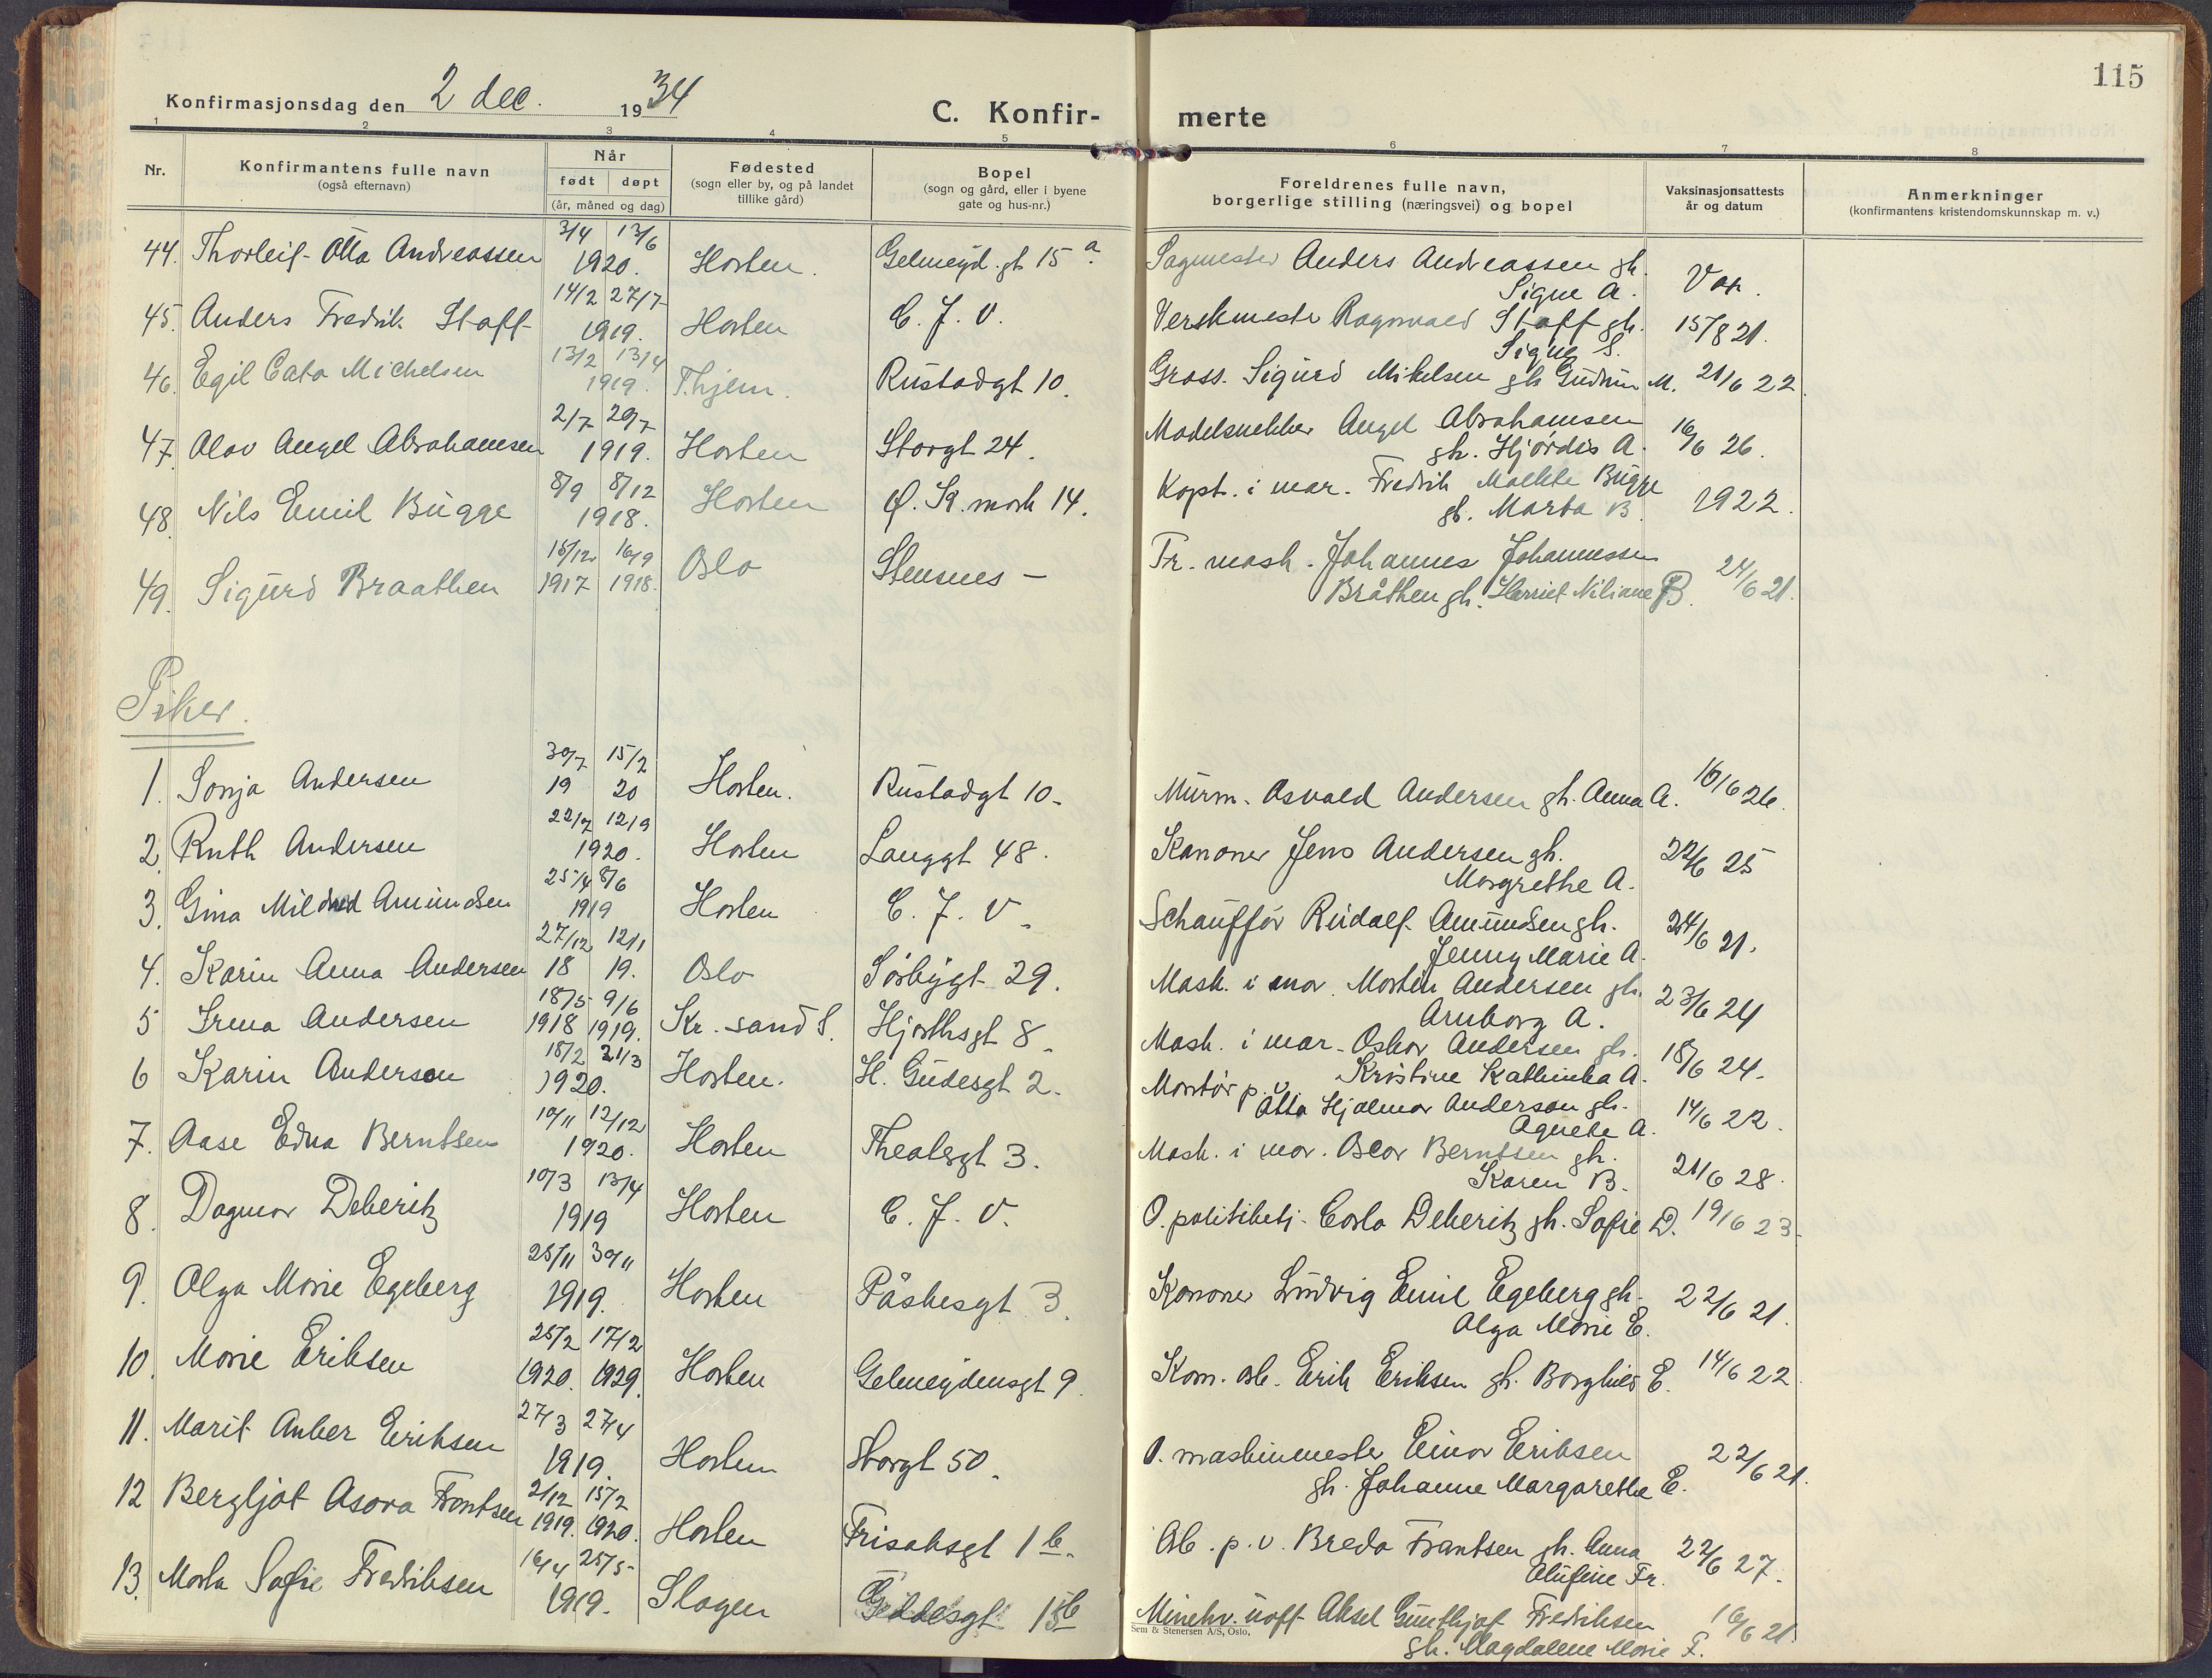 115
Konfirmasjonsdag den 2 dec. 1934
C. Konfir- merte
1 2 3 4 5 6 7 8
Nr.
Konfirmantens fulle navn
(også efternavn)
Når
født døpt
(år, måned og dag)
Fødested
(sogn eller by, og på landet
tillike gård)
Bopel
(sogn og gård, eller i byene
gate og hus-nr.)
Foreldrenes fulle navn,
borgerlige stilling (næringsvei) og bopel
Vaksinasjonsattests
år og datum
Anmerkninger
(konfirmantens kristendomskunnskap m. v.)
44. Thorleif Otto Andreassen 3/4 13/6 1920. Horten. Gelmeyd. gt 15 a. Sagmester Anders Andreassen gh.
Signe A.
45. Anders Fredrik Staff 14/2 27/7 1919. Horten C. J. V. Verkmester Ragnvald Staff gh. 15/8 21.
Signe S.
46. Egil Cato Michelsen 13/2 13/4 1919. Rustadgt 10. Gross. Sigurd Mikelsen gh Gudrun M. 21/6 22
47. Olav Angel Abrahamsen 2/7 29/7 1919. Horten Storgt 24. Modelsnekker Angel Abrahamsen 16/6 26.
gh. Hjørdis A.
48. Nils Emil Bugge 8/9 8/12 1918. Horten Ø. K. mark 14. Kapt. i mar. Fredrik Moltke Bugge 1922.
gh. Marta B.
49. Sigurd Braathen 15/12 1917 16/9 1918. Oslo Stensnes – Fr. mask. Johannes Johannessen 24/6 21.
Bråthen gh. Harriet Niliane B.
Piker.
1. Sonja Andersen 30/7 19 15/2 20 Horten. Rustadgt 10. Murm. Osvald Andersen gh. Anna A. 16/6 26.
2. Ruth Andersen 22/7 12/9 1920. Horten Langgt 48. Kanoner Jens Andersen gh. 22/6 25
Margrethe A.
3. Gina Mildred Amundsen 25/4 8/6 1919 Horten C. J. V. Schauffør Rudolf Amundsen gh. 24/6 21.
Jenny Marie A.
4. Karin Anna Andersen 27/12 18 12/1 19. Oslo Sørbygt 29. Mask. i mar. Morten Andersen gh. 23/6 24
Arnborg A.
5 Irma Andersen 18/5 1918 9/6 1919. Kr. sand S. Hjorthsgt 8. Mask. i mar. Oskar Andersen gh. 18/6 24.
Kristine Kathinka A.
6 Karin Anderson 18/2 21/3 1920. Horten. H. Gudesgt 2. Montør p. v. Otto Hjalmar Anderson gh. 14/6 22.
Agnete A.
7. Aase Edna Berntsen 10/11 12/12 1920. Horten Theatergt 3. Mask. i mar. Oscar Berntsen gh. 21/6 28.
Karen B.
8. Dagmar Deberitz 10/3 13/4 1919 Horten C. J. V. O. politibetj. Carlo Deberitz gh. Sofie D. 19/6 23.
9. Olga Marie Egeberg 30/11 1919. Horten Påskesgt 3. Kanoner Ludvig Emil Egeberg gh. 22/6 21.
Olga Marie E.
10. Marie Eriksen 25/2 1920. 17/2 1929. Horten Gelmeydensgt 9. Kom. arb. Erik Eriksen gh. Borghild E. 14/6 22.
11. Marit Anker Eriksen 27/3 27/4 1919 Horten Storgt 50. O. maskinmester Einar Eriksen 22/6 21.
gh. Johanne Margarethe E.
12 Bergljot Asora Frantsen 2/12 1919. 15/2 1920. Horten Frisaksgt 1 b. Arb. p. v. Breda Frantsen gh. Anna 22/6 27.
Olufine Fr.
13. Marta Sofie Fredriksen 16/4 25/5 1919. Slagen Geddesgt 15 b Minekv. uoff. Aksel Gunthjof Fredriksen 16/6 21.
gh. Magdalene Marie F.
Sem & Stenersen A/S, Oslo.